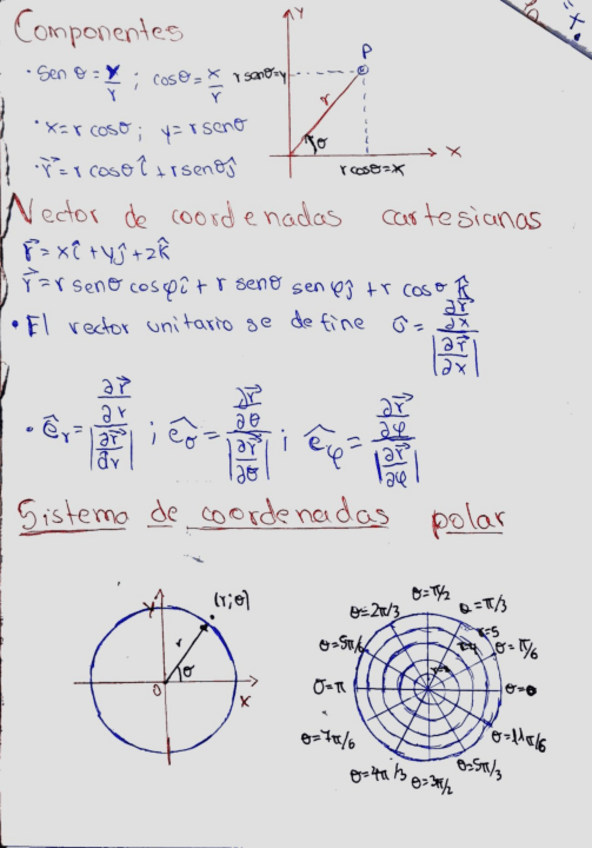 Componentes
· Sen θ = y/r ; cos θ = x/r
· x = r cos θ ; y = r sen θ
· r⃗ = r cos θ î + r sen θ ĵ
Y
P
r sen θ = y
r
θ
X
r cos θ = x
Vector de coordenadas cartesianas
r⃗ = xî + yĵ + zk̂
r⃗ = r sen θ cos φ î + r sen θ sen φ ĵ + r cos θ k̂
• El vector unitario se define û = (∂r⃗/∂x) / |∂r⃗/∂x|
• ê_r = (∂r⃗/∂r) / |∂r⃗/dr| ; ê_θ = (∂r⃗/∂θ) / |∂r⃗/∂θ| ; ê_φ = (∂r⃗/∂φ) / |∂r⃗/∂φ|
Sistema de coordenadas polar
y
(r; θ)
r
θ
0
X
θ = π/2
θ = 2π/3
θ = π/3
r = 5
r = 4
θ = 5π/6
θ = π/6
θ = π
θ = 0
θ = 7π/6
θ = 11π/6
θ = 4π/3
θ = 3π/2
θ = 5π/3